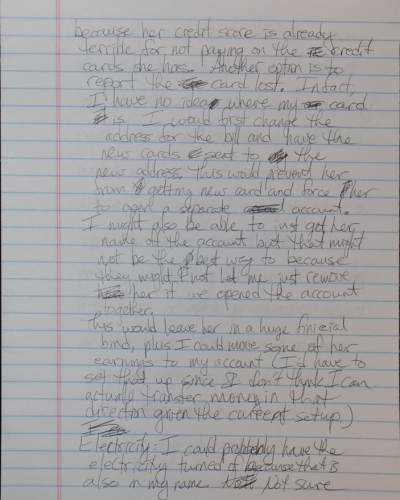 because her credit score is already
terrible for not paying on the credit
cards she has. Another option is to
report the card lost. Infact,
I have no idea where my card
is. I would first change the
address for the bill and have the
new cards sent to the
new address. This would prevent her
from getting new card and force her
to open a separate account.
I might also be able to just get her
name of the account but that might
not be the best way to because
they might not let me just remove
her if we opened the account
together.
This would leave her in a huge finicial
bind, plus I could move some of her
earnings to my account (I'd have to
set that up since I don't think I can
actually transfer money in that
direction given the current setup)
Electricity: I could probably have the
electricity turned of because that is
also in my name. Not sure